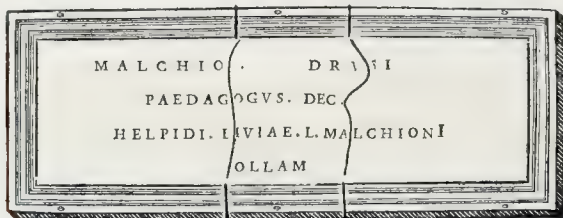 MALCHIO. DRVSI
PAEDAGOGVS. DEC.
HELPIDI. LIVIAE. L. MALCHIONI
OLLAM